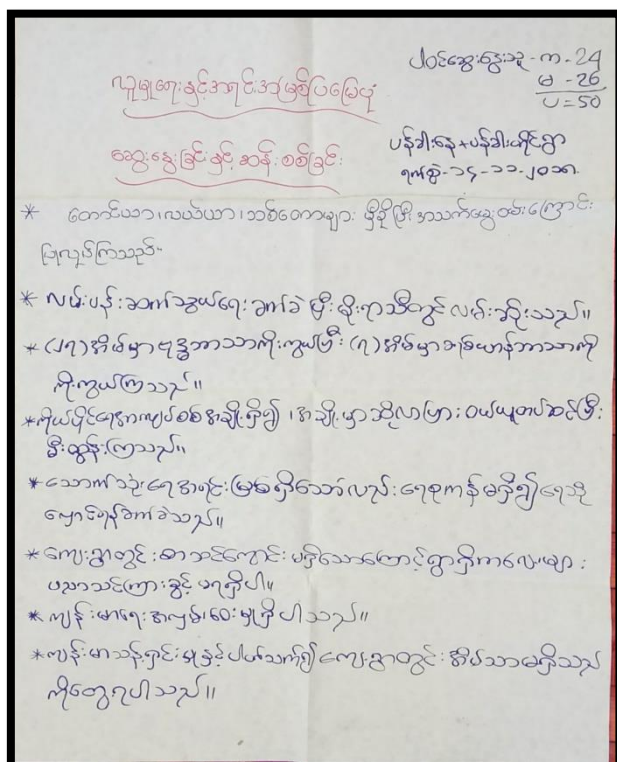 ပါဝင်ဆွေးနွေးသူ - က - 24
မ - 26
ပ = 50
လူမှုရေးနှင့်အရင်းအမြစ်ပြမြေပုံ
ပန်ခါးနေ+ပန်ခါးတိုင်ရွာ
ဆွေးနွေးခြင်းနှင့်ဆန်းစစ်ခြင်း
ရက်စွဲ - ၁၄ - ၁၁ - ၂၀၁၈
* တောင်ယာ၊ လယ်ယာ၊ သစ်တောများ မှီခိုပြီး အသက်မွေးဝမ်းကြောင်း
ပြုလုပ်ကြသည်။
* လမ်းပန်းဆက်သွယ်ရေး ခက်ခဲပြီး မိုးရာသီတွင် လမ်းဆိုးသည်။
* (၂၇)အိမ်မှာဗုဒ္ဓဘာသာကိုးကွယ်ပြီး (၇)အိမ်မှာခရစ်ယာန်ဘာသာကို
ကိုးကွယ်ကြသည်။
* ကိုယ်ပိုင်ရေအားလျှပ်စစ်အချို့ရှိ၍ ၊ အချို့မှာဆိုလာပြား ဝယ်ယူတပ်ဆင်ပြီး
မီးထွန်းကြသည်။
* သောက်သုံးရေအရင်းမြစ်ရှိသော်လည်း ရေစုကန်မရှိ၍ ရေသို
လှောင်ရန်ခက်ခဲသည်။
* ကျေးရွာတွင် စာသင်ကျောင်းမရှိသောကြောင့် ရွာရှိကလေးများ
ပညာသင်ကြားခွင့် မရရှိပါ။
* ကျန်းမာရေး အလှမ်းဝေးမှုရှိပါသည်။
* ကျန်းမာသန့်ရှင်းမှုနှင့်ပါတ်သက်၍ ကျေးရွာတွင် အိမ်သာမရှိသည်
ကိုတွေ့ရပါသည်။